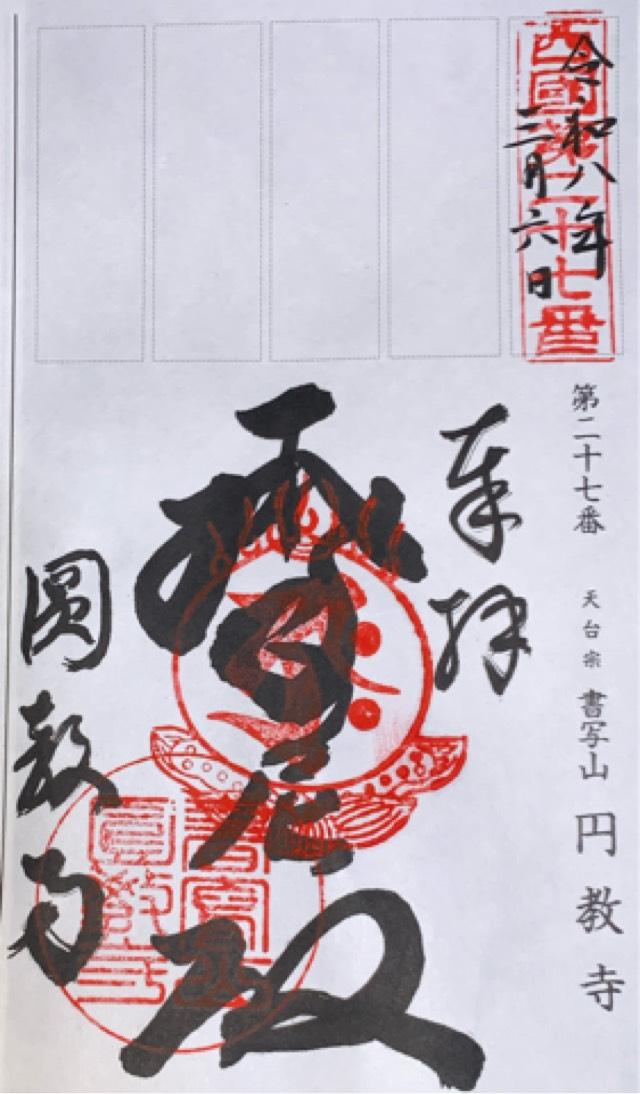 西國第二十七番
令和八年
三月六日
第二十七番 天台宗 書写山 円教寺
奉拝
摩尼殿
圓教寺
書寫山
圓教寺